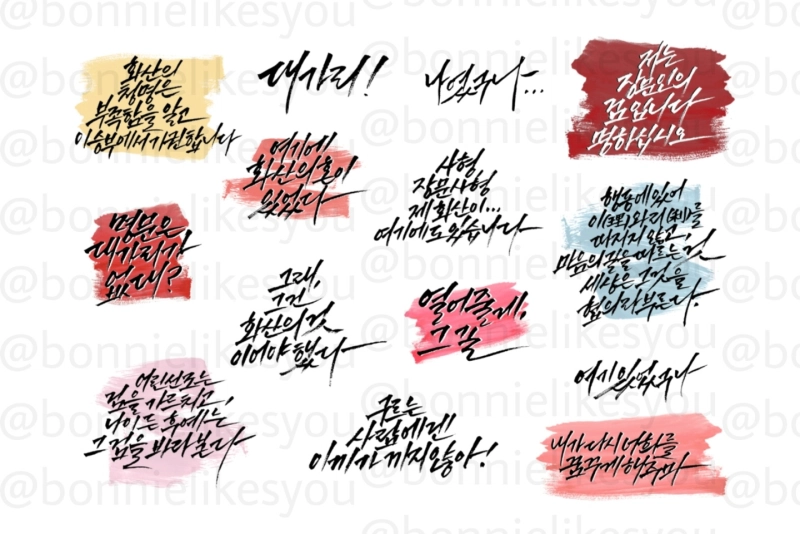 @bonnielikesyou
화산의
청명은
부족함을 알고
이 승부에서 기권합니다
대가리!
나였구나...
저는
장문인의
검입니다
명하십시오
여기에
화산의 혼이
있었다
사형
장문사형
제 화산이...
여기에도 있습니다
행동에 있어
이(理)와 리(利)를
따지지 않고,
마음의 길을 따르는 것
세상은 그것을
협의라 부른다.
명문은
대가리가
없대?
그래,
그건
화산의 것
이어야 했다
열어줄게,
그 길
여기 있었구나
어린 선조는
검을 가르치고,
나이든 후예는
그 검을 바라본다
구르는
사람에겐
이끼가 끼지 않아!
내가 다시 너희를
꿈꾸게 해 주마